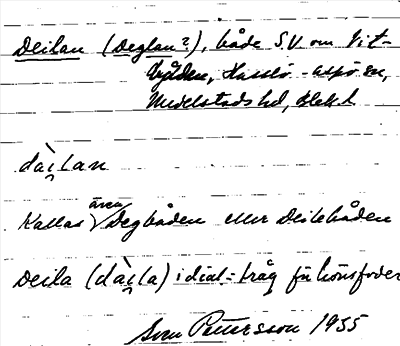 Deilan (Deglan?), både S.V om Vit-
båden, Hasslö-Aspö sn,
Medelstads hd, Blek.l
dài̯lan
Kallas även Degbåden eller Deilebåden
Deila (dài̯la) i dial = tråg för hönsfoder
Sven Pettersson 1955